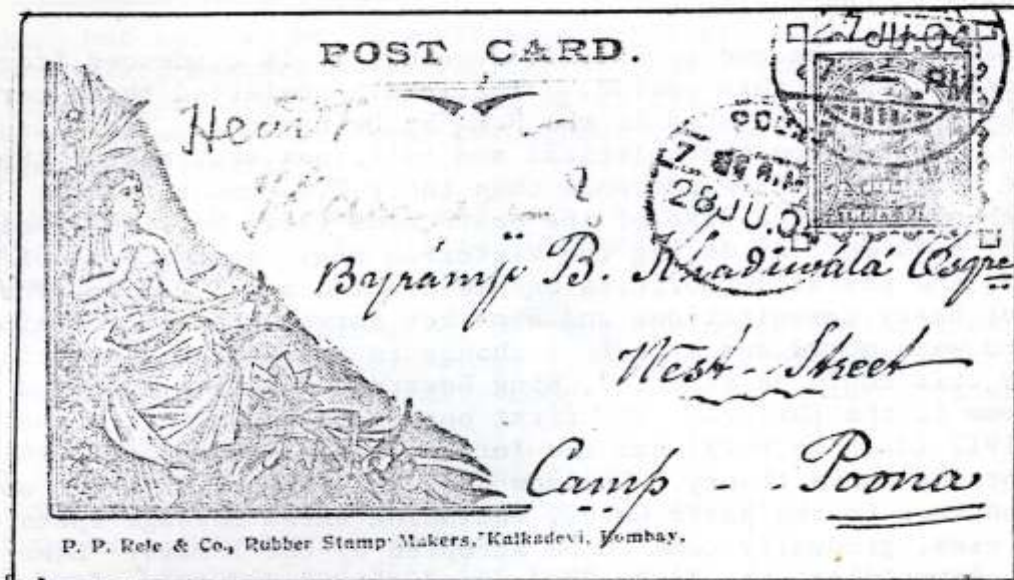 POST CARD.
27 JU.0
7
28 JU.0
Byrámji B. Khadiwálá Esqre
West - Street
Camp - - Poona
P. P. Rele & Co., Rubber Stamp Makers, Kalkadevi, Bombay.